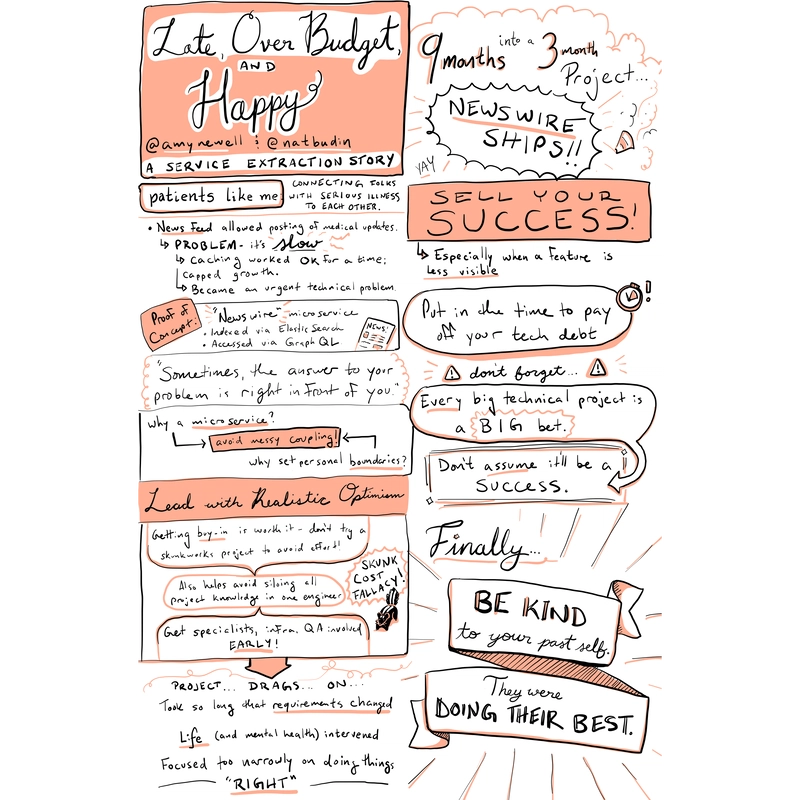 Late, Over Budget,
AND
Happy
@amynewell & @natbudin
A SERVICE EXTRACTION STORY
patients like me
CONNECTING FOLKS
WITH SERIOUS ILLNESS
TO EACH OTHER.
• News Feed allowed posting of medical updates.
↳ PROBLEM - it's slow
↳ Caching worked OK for a time;
capped growth.
↳ Became an urgent technical problem.
Proof of
Concept:
"Newswire" microservice
• Indexed via ElasticSearch
• Accessed via GraphQL
NEWS!
"Sometimes, the answer to your
problem is right in front of you."
why a microservice?
avoid messy coupling!
why set personal boundaries?
Lead with Realistic Optimism
Getting buy-in is worth it - don't try a
skunkworks project to avoid effort!
SKUNK
COST
FALLACY!
Also helps avoid siloing all
project knowledge in one engineer
Get specialists, infra, QA involved
EARLY!
PROJECT... DRAGS... ON...
Took so long that requirements changed
Life (and mental health) intervened
Focused too narrowly on doing things
"RIGHT"
9 months into a 3 month
Project...
NEWSWIRE
SHIPS!!
YAY
SELL YOUR
SUCCESS!
↳ Especially when a feature is
less visible
Put in the time to pay
off your tech debt
!
don't forget...
Every big technical project is
a BIG bet.
Don't assume it'll be a
SUCCESS.
Finally...
BE KIND
to your past self.
They were
DOING THEIR BEST.